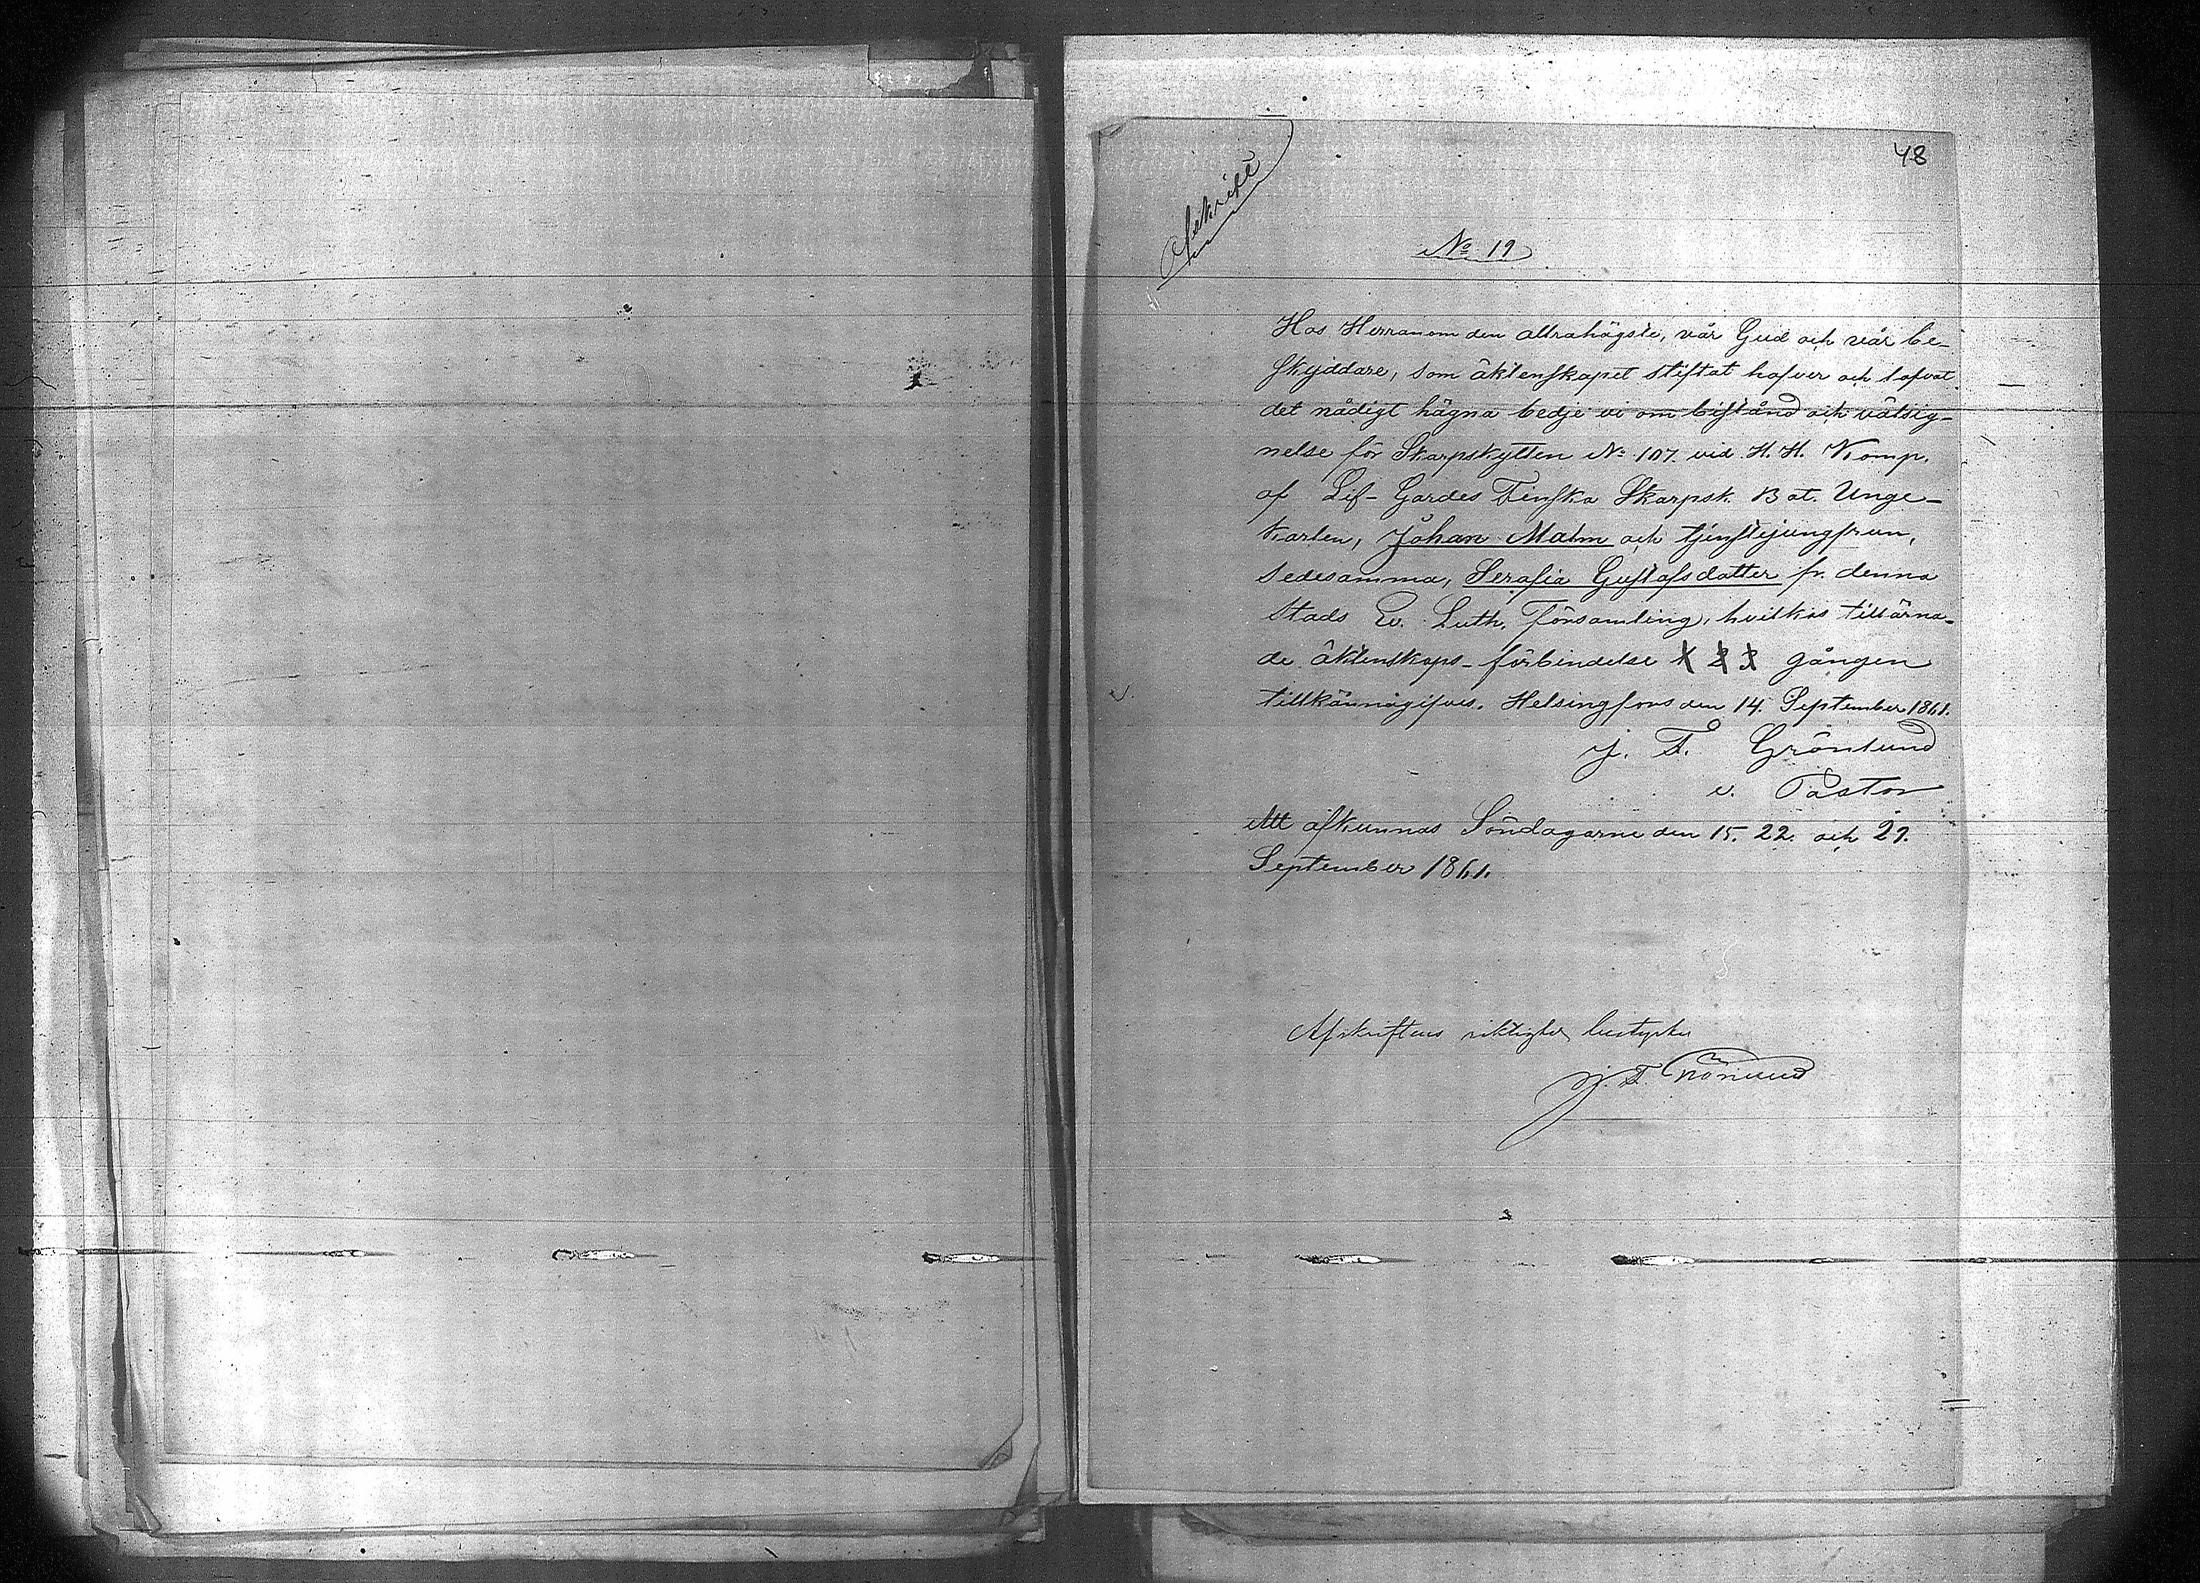 48
Afskrift
No 19
Hos Herranom den allrahögste, vår Gud och vår be-
skyddare, som äktenskapet stiftat hafver och lofvat
det nådigt hägna bedje vi om bistånd och välsig-
nelse för Skarpskytten No 107. vid H. H. Komp.
af Lif-Gardes Finska Skarpsk. Bat. Unge-
karlen, Johan Malm och tjenstejungfrun,
sedesamma, Serafia Gustafsdotter fr. denna
stads Ev. Luth. Församling, hvilkas tillärna-
de äktenskaps-förbindelse 1 2 3 gången
tillkännagifves. Helsingfors den 14. September 1861.
J. F. Grönlund
v. Pastor
Att afkunnas Söndagarne den 15. 22. och 29.
September 1861.
Afskriftens riktighet bestyrker
J. F. Grönlund